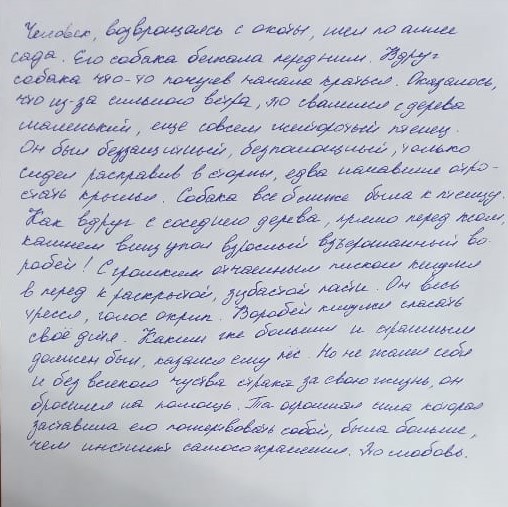 Человек, возвращаясь с охоты, шел по аллее
сада. Его собака бежала перед ним. Вдруг
собака что-то почуев начала краться. Оказалось,
что из-за сильного ветра, то свалился с дерева
маленький, еще совсем желторотый птенец.
Он был беззащитный, беспомощный, только
сидел расправив в стороны, едва начавшие отро-
стать крылья. Собака все ближе была к птенцу.
Как вдруг с соседнего дерева, прямо перед псом,
камнем вниз упал взрослый взъерошанный во-
робей! С громким отчаенным писком кинулся
в перед к раскрытой, зубастой пасти. Он весь
трессся, голос охрип. Воробей кинулся спасать
своё дитя. Каким же большим и страшным
должен был, казался ему пёс. Но не жалея себя
и без всякого чуства страха за свою жизнь, он
бросился на помощь. Та огромная сила которая
заставила его пожертвовать собой, была больше,
чем инстинкт самосохранения. Это любовь.